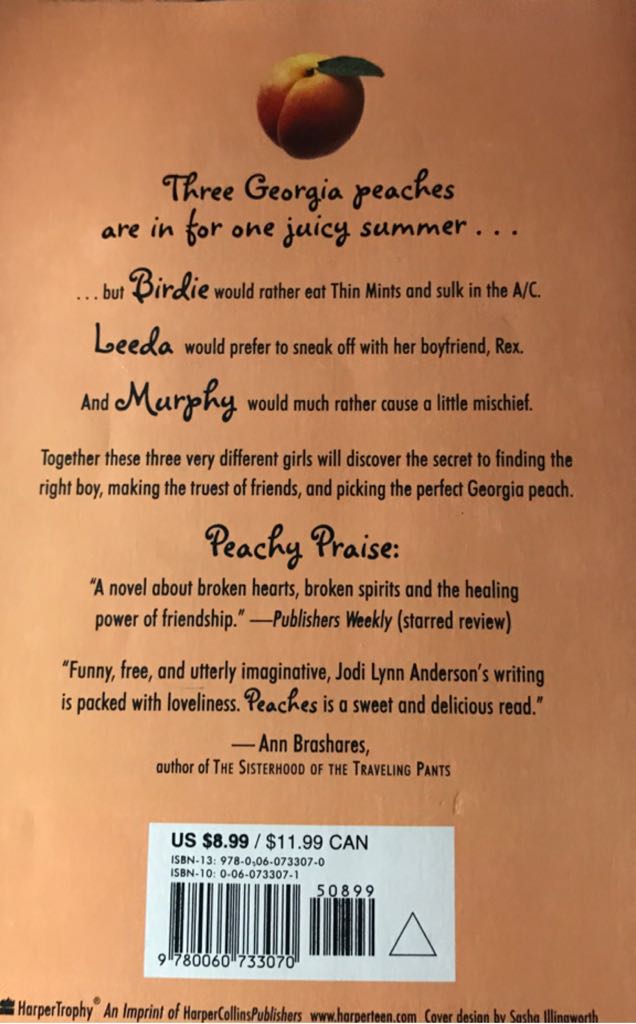 Three Georgia peaches
are in for one juicy summer . . .
. . . but Birdie would rather eat Thin Mints and sulk in the A/C.
Leeda would prefer to sneak off with her boyfriend, Rex.
And Murphy would much rather cause a little mischief.
Together these three very different girls will discover the secret to finding the
right boy, making the truest of friends, and picking the perfect Georgia peach.
Peachy Praise:
“A novel about broken hearts, broken spirits and the healing
power of friendship.” —Publishers Weekly (starred review)
“Funny, free, and utterly imaginative, Jodi Lynn Anderson’s writing
is packed with loveliness. Peaches is a sweet and delicious read.”
— Ann Brashares,
author of THE SISTERHOOD OF THE TRAVELING PANTS
US $8.99 / $11.99 CAN
ISBN-13: 978-0-06-073307-0
ISBN-10: 0-06-073307-1
50899
9 780060 733070
HarperTrophy® An Imprint of HarperCollinsPublishers www.harperteen.com Cover design by Sasha Illingworth